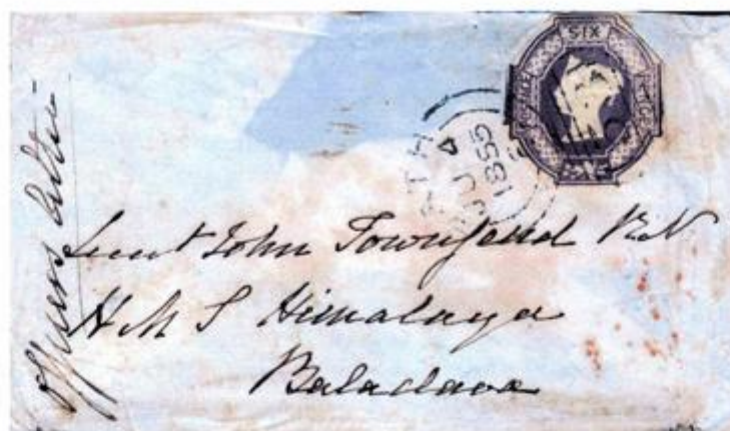 SIX
BATH
JU 4
1855
Officers letter
Lieut John Townsend RN
H M S Himalaya
Balaclava